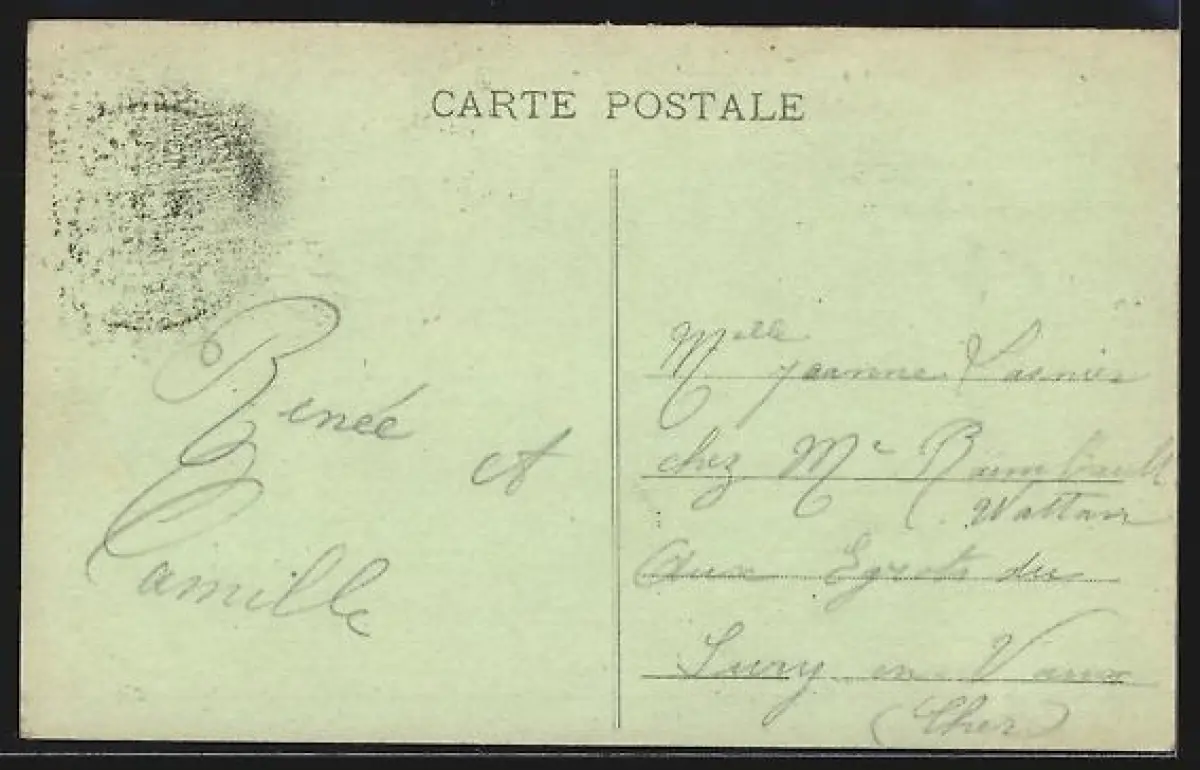 CARTE POSTALE
Renée
et
Camille
Melle Jeanne Lasnier
chez Mr Raimbault
Aux Egrots du
Sury en Vaux
(Cher)